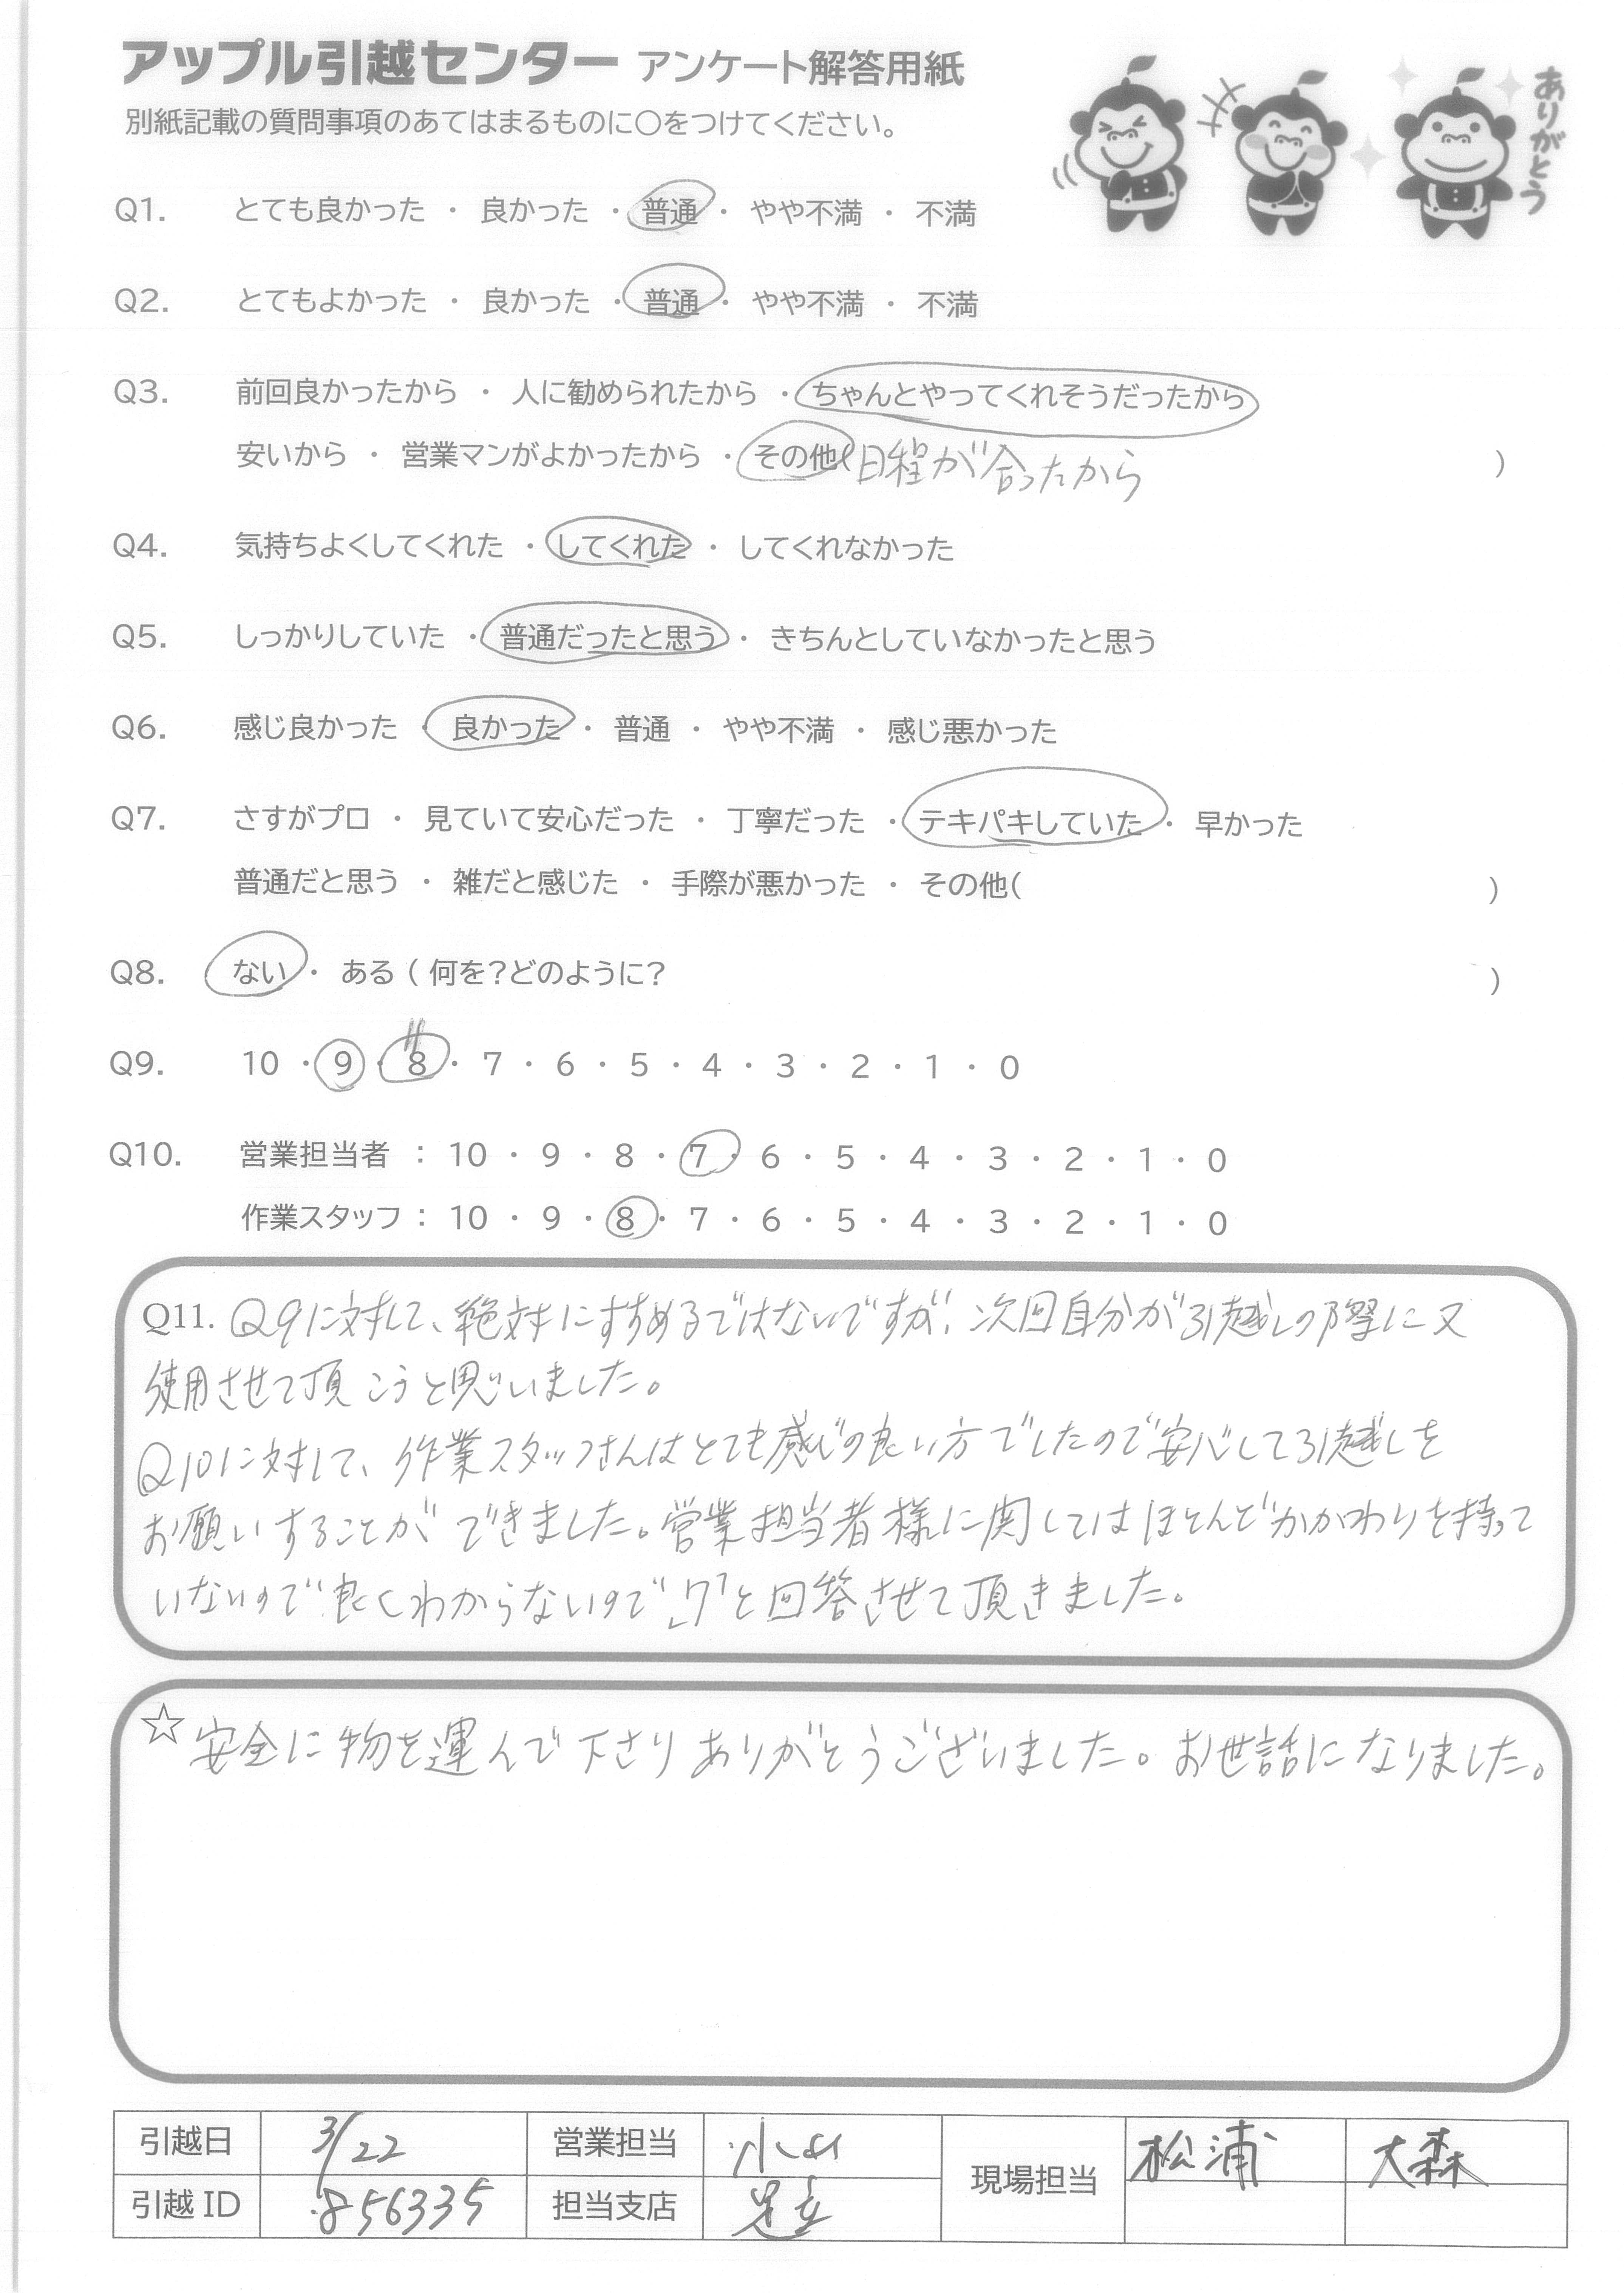 アップル引越センター アンケート解答用紙
別紙記載の質問事項のあてはまるものに○をつけてください。
ありがとう
Q1. とても良かった ・ 良かった ・ 普通 ・ やや不満 ・ 不満
Q2. とてもよかった ・ 良かった ・ 普通 ・ やや不満 ・ 不満
Q3. 前回良かったから ・ 人に勧められたから ・ ちゃんとやってくれそうだったから
安いから ・ 営業マンがよかったから ・ その他(日程が合ったから )
Q4. 気持ちよくしてくれた ・ してくれた ・ してくれなかった
Q5. しっかりしていた ・ 普通だったと思う ・ きちんとしていなかったと思う
Q6. 感じ良かった ・ 良かった ・ 普通 ・ やや不満 ・ 感じ悪かった
Q7. さすがプロ ・ 見ていて安心だった ・ 丁寧だった ・ テキパキしていた ・ 早かった
普通だと思う ・ 雑だと感じた ・ 手際が悪かった ・ その他( )
Q8. ない ・ ある ( 何を?どのように? )
Q9. 10 ・ 9 ・ 8 ・ 7 ・ 6 ・ 5 ・ 4 ・ 3 ・ 2 ・ 1 ・ 0
Q10. 営業担当者 : 10 ・ 9 ・ 8 ・ 7 ・ 6 ・ 5 ・ 4 ・ 3 ・ 2 ・ 1 ・ 0
作業スタッフ : 10 ・ 9 ・ 8 ・ 7 ・ 6 ・ 5 ・ 4 ・ 3 ・ 2 ・ 1 ・ 0
Q11. Q9に対して、絶対にすすめるではないですが、次回自分が引越しの際に又
使用させて頂こうと思いました。
Q10に対して、作業スタッフさんはとても感じの良い方でしたので安心して引越しを
お願いすることができました。営業担当者様に関してはほとんどかかわりを持って
いないので良くわからないので「7」と回答させて頂きました。
☆安全に物を運んで下さりありがとうございました。お世話になりました。
引越日 3/22 営業担当 現場担当 松浦 大森
引越ID 856335 担当支店 足立